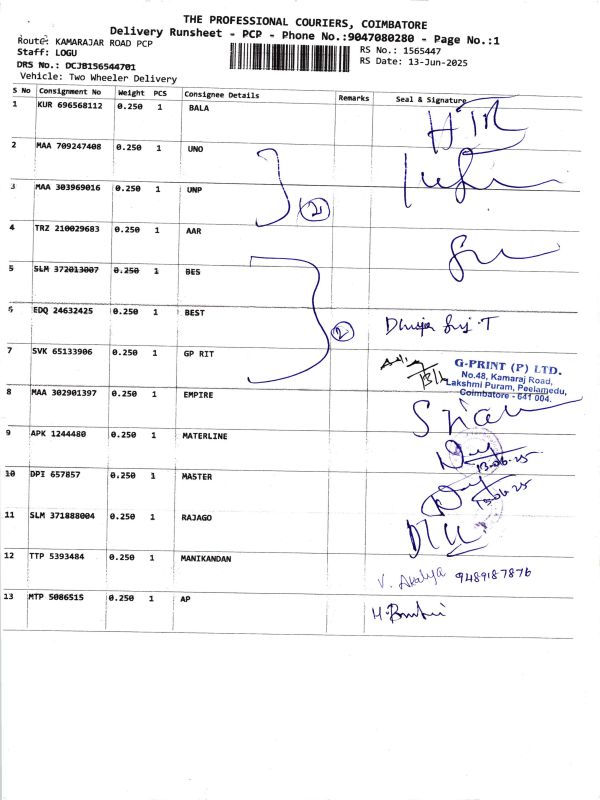 THE PROFESSIONAL COURIERS, COIMBATORE
Delivery Runsheet - PCP - Phone No.:9047080280 - Page No.:1
Route: KAMARAJAR ROAD PCP
RS No.: 1565447
Staff: LOGU
RS Date: 13-Jun-2025
DRS No.: DCJB156544701
Vehicle: Two Wheeler Delivery
S No Consignment No Weight PCS Consignee Details Remarks Seal & Signature
1 KUR 696568112 0.250 1 BALA
2 MAA 709247408 0.250 1 UNO
3 MAA 303969016 0.250 1 UNP
2
4 TRZ 210029683 0.250 1 AAR
5 SLM 372013007 0.250 1 BES
6 EDQ 24632425 0.250 1 BEST
2
7 SVK 65133906 0.250 1 GP RIT
G-PRINT (P) LTD.
No.48, Kamaraj Road,
Lakshmi Puram, Peelamedu,
Coimbatore - 641 004.
8 MAA 302901397 0.250 1 EMPIRE
9 APK 1244480 0.250 1 MATERLINE
13-06-25
10 DPI 657857 0.250 1 MASTER
13-06-25
11 SLM 371888004 0.250 1 RAJAGO
12 TTP 5393484 0.250 1 MANIKANDAN
V. Akalya 9489187876
13 MTP 5086515 0.250 1 AP